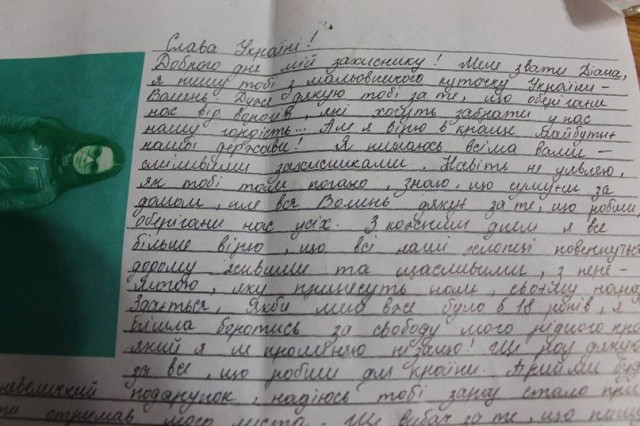 Слава Україні!
Доброго дня мій захиснику! Мене звати Діана,
я пишу тобі з мальовничого куточку України -
Волинь. Дуже дякую тобі за те, що оберігаєш
нас від ворогів, які хочуть забрати у нас
нашу гордість... Але я вірю в краще майбутнє
нашої держави! Я пишаюсь всіма вами -
сміливими захисниками. Навіть не уявляю,
як тобі там погано, знаю, що сумуєш за
домом, але вся Волинь дякує за те, що робиш,
оберігаєш нас усіх. З кожним днем я все
більше вірю, що всі наші хлопці повернуться
додому живими та щасливими, з пере-
могою, яку принесуть нам, своєму
Здається, якби мені вже було б 18 років, я б
пішла боротись за свободу мого рідного
який я не проміняю нізащо! Ще раз дякую
за все, що робиш для країни. Прийми
невеличкий подарунок, надіюсь тобі зараз стало
ти отримав мого листа. Ще вибач за те, що пишу